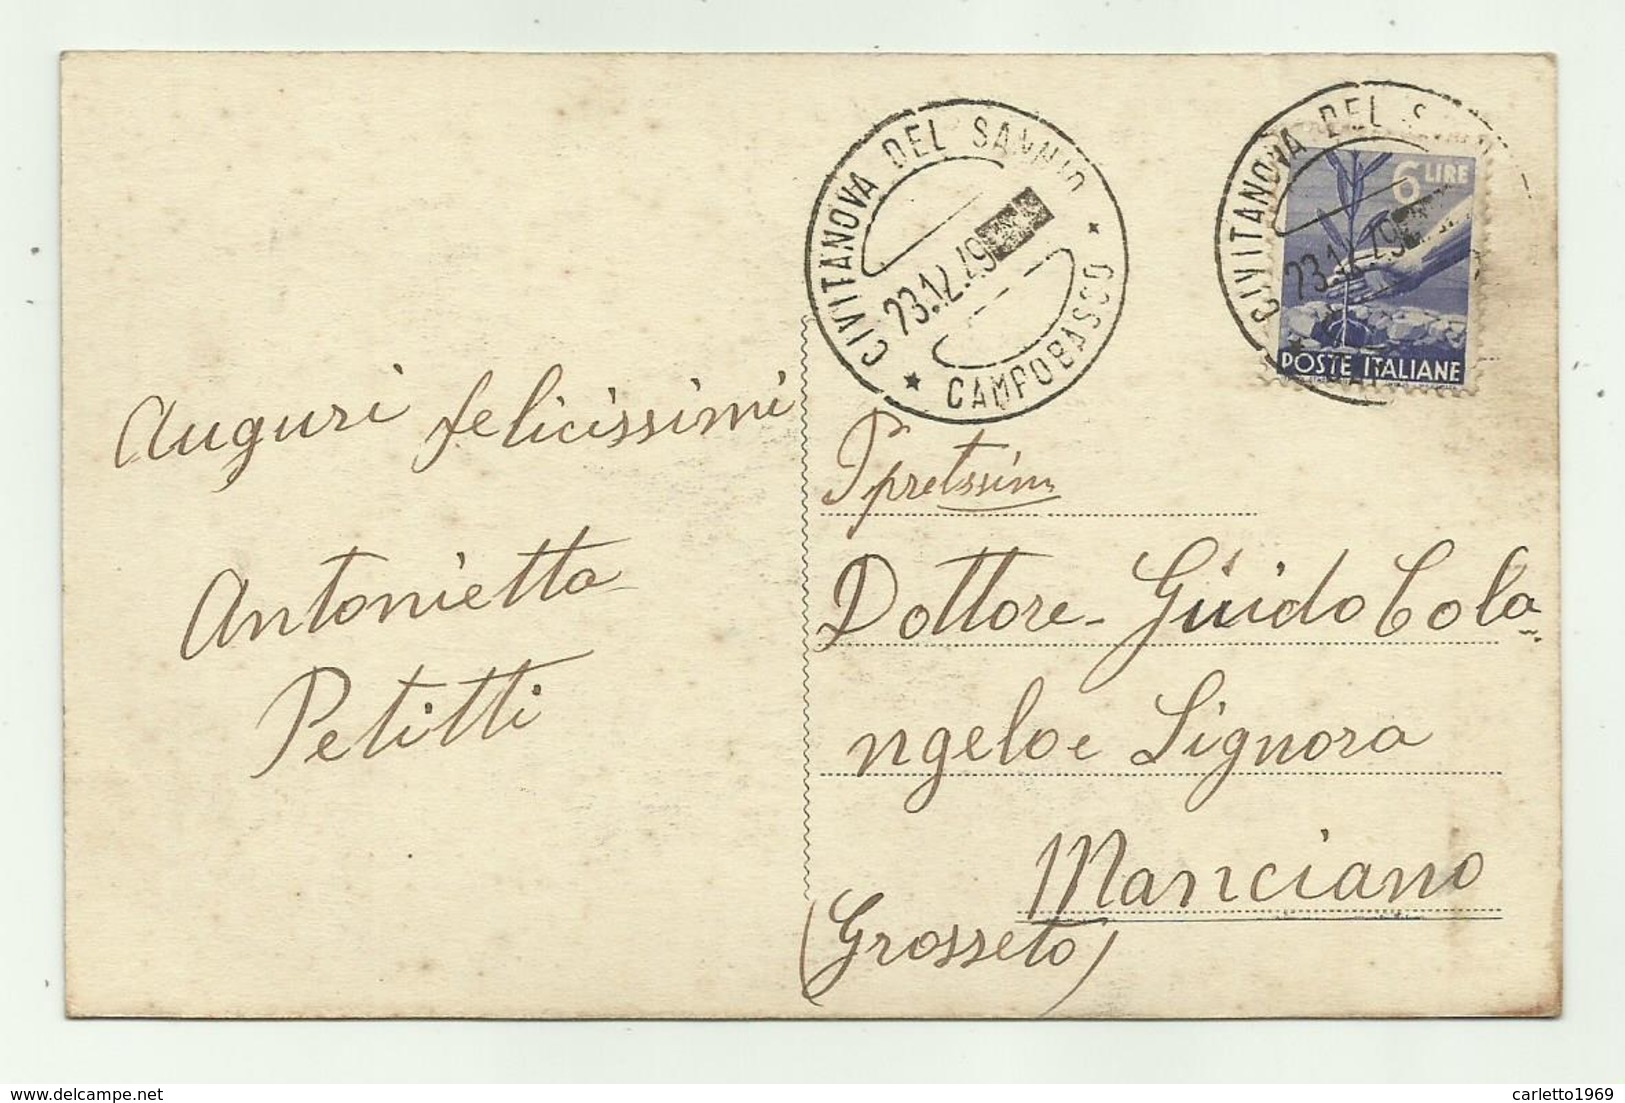 CIVITANOVA DEL SANNIO
23.12.49
* CAMPOBASSO *
CIVITANOVA DEL S
23.12.49
6 LIRE
POSTE ITALIANE
Auguri felicissimi
Antonietta
Petitti
Dottore Guido Cola
ngelo e Signora
Manciano
(Grosseto)
carletto1969